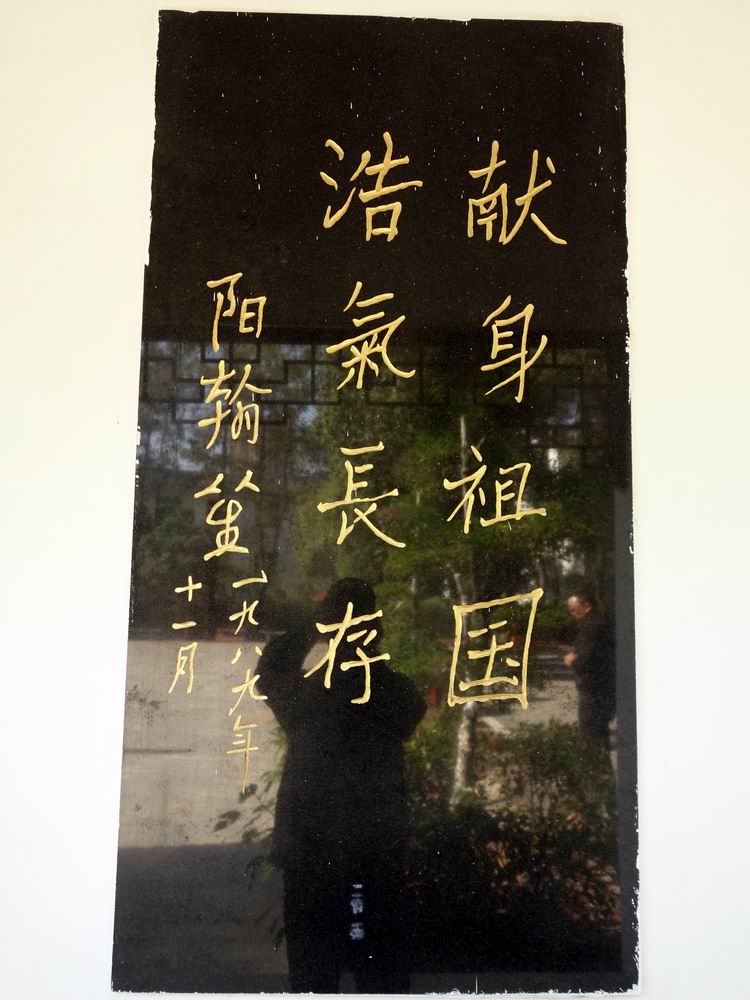 献身祖国
浩氣長存
阳翰笙
一九八九年
十一月